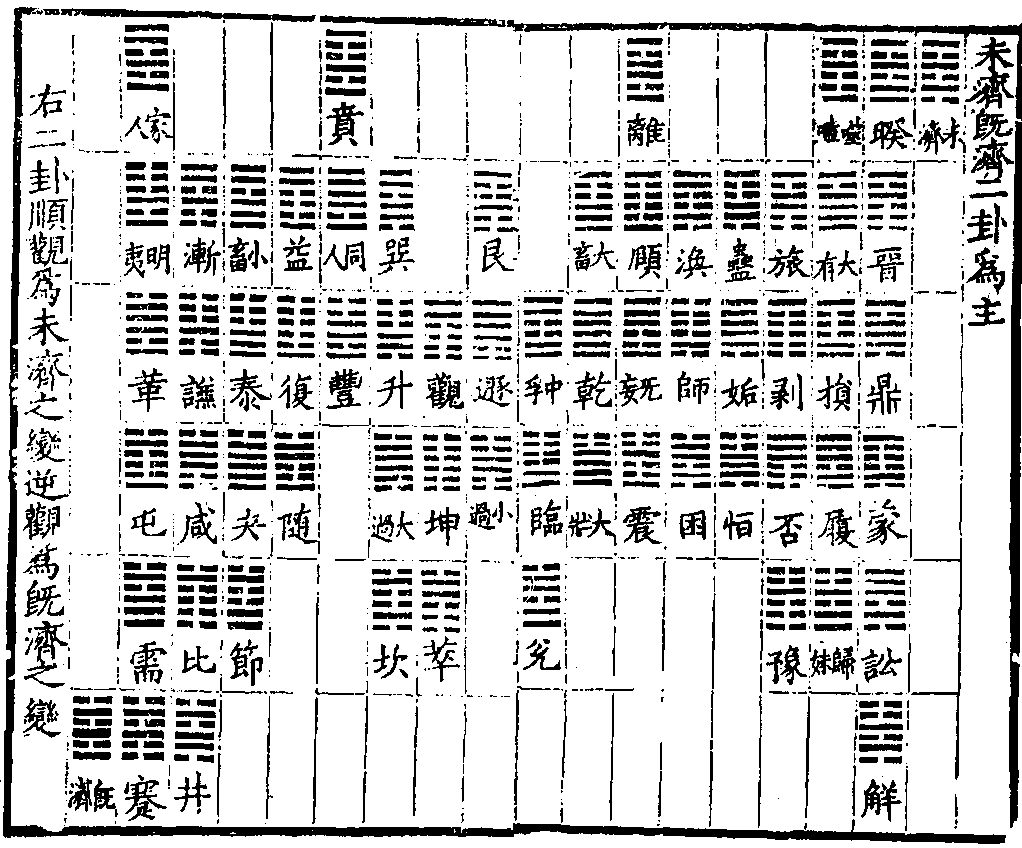 未濟既濟二卦爲主
未濟
睽
晉
鼎
蒙
訟
解
噬嗑
大有
損
履
歸妹
旅
剥
否
豫
蠱
姤
恒
渙
師
困
離
頤
无妄
震
大畜
乾
大壯
中孚
臨
兌
艮
遯
小過
觀
坤
萃
巽
升
大過
坎
賁
同人
豐
益
復
随
小畜
泰
夬
節
漸
謙
咸
比
井
家人
明夷
革
屯
需
蹇
既濟
右二卦順觀爲未濟之變逆觀爲既濟之變